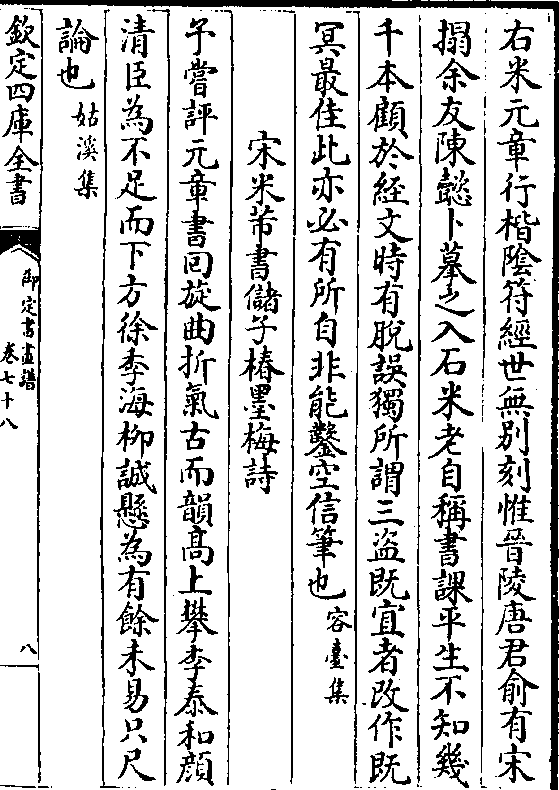 右米元章行楷陰符經世無別刻惟晉陵唐君俞有宋
搨余友陳懿卜摹之入石米老自稱書課平生不知幾
千本顧於經文時有脫誤獨所謂三盗既宜者改作既
冥最佳此亦必有所自非能鑿空信筆也容臺集
宋米芾書儲子椿墨梅詩
予嘗評元章書回旋曲折氣古而韻高上攀李泰和顔
清臣為不足而下方徐季海柳誠懸為有餘未易只尺
論也姑溪集
欽定四庫全書
御定書畫譜
卷七十八
八